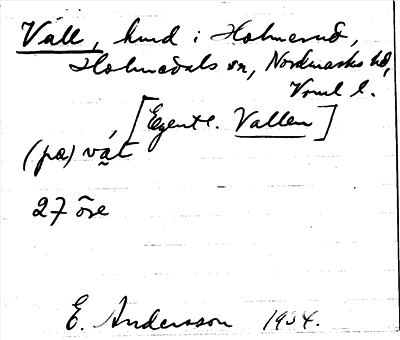 Väll, hmd i Holmerud,
Holmedals sn, Nordmarks hd,
Vrml l.
[Egentl. Vallen]
(pæ) vát
27 öre
E. Andersson 1934.